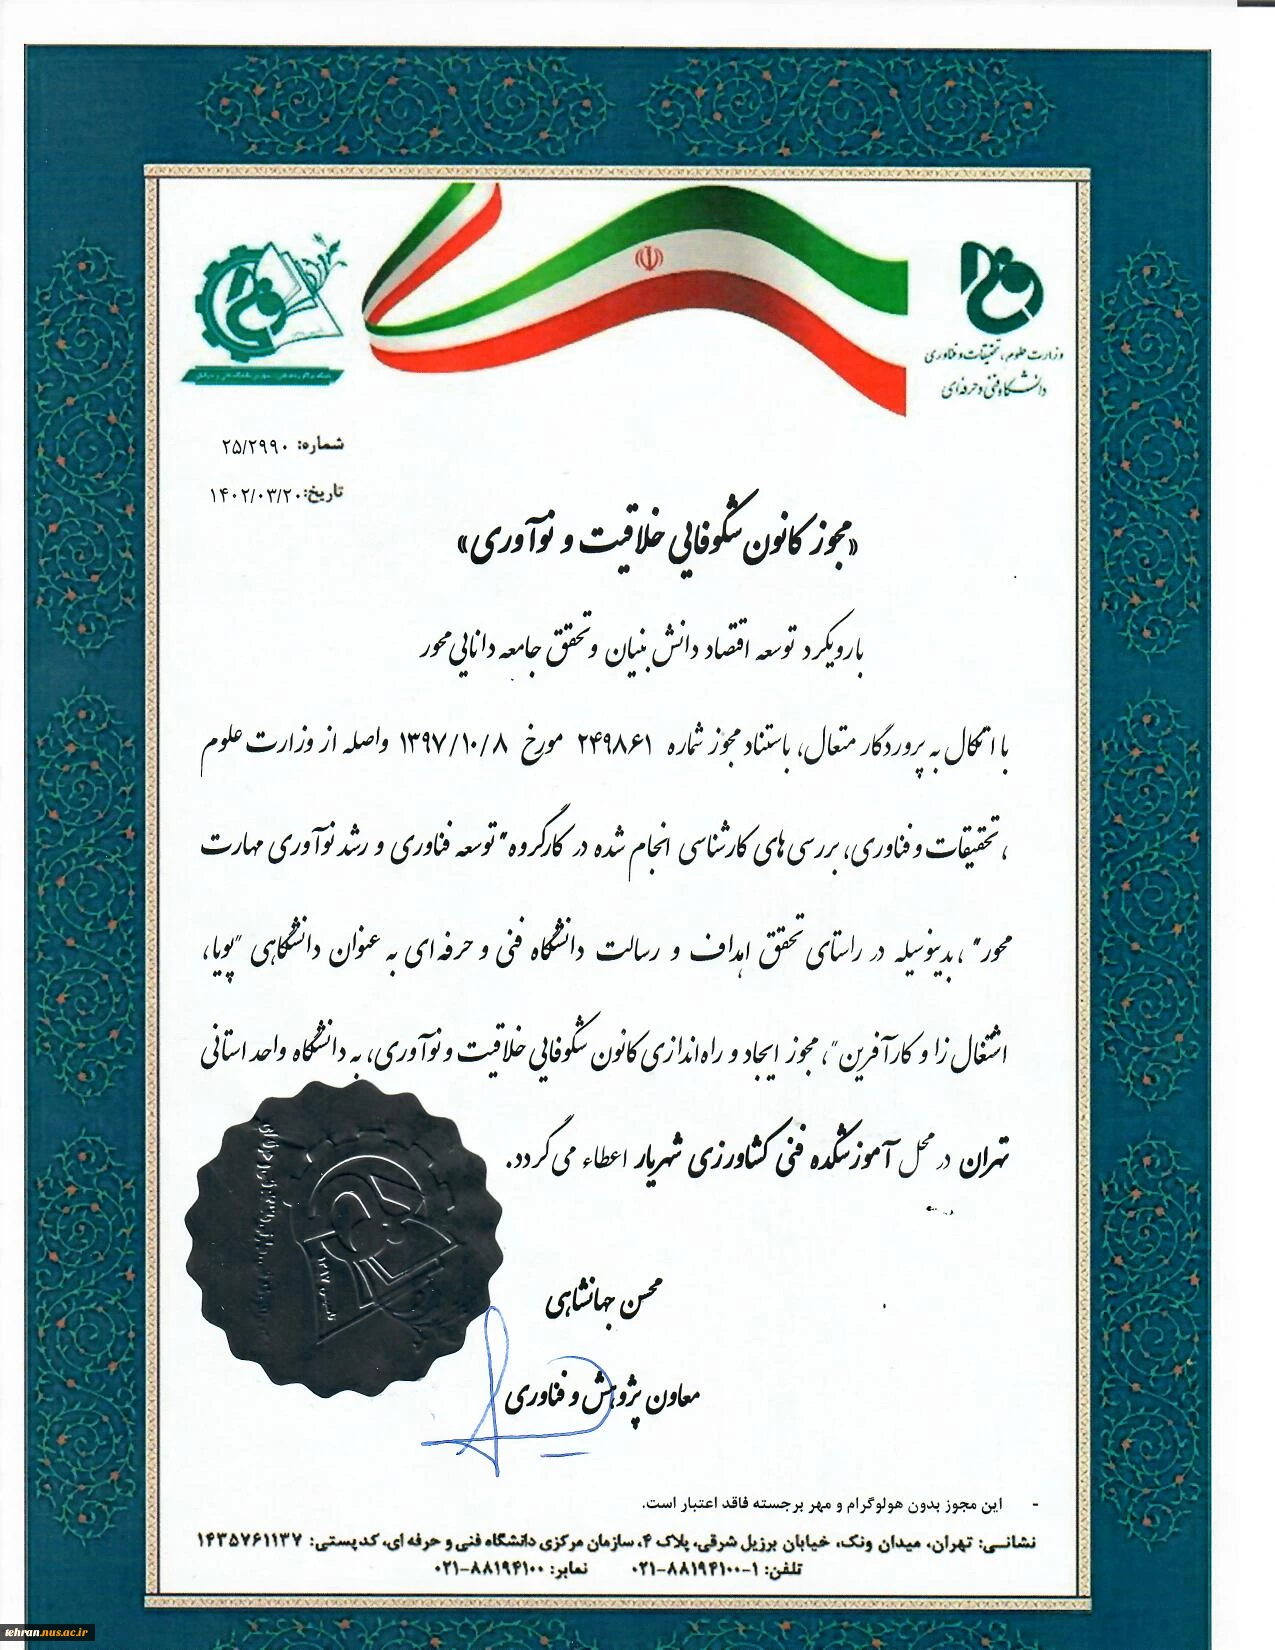 وزارت علوم، تحقیقات و فناوری
دانشگاه فنی و حرفه ای
شماره: ۲۵/۲۹۹۰
تاریخ: ۱۴۰۲/۰۳/۲۰
«مجوز کانون شکوفایی خلاقیت و نوآوری»
با رویکرد توسعه اقتصاد دانش بنیان و تحقق جامعه دانایی محور
با اتکال به پروردگار متعال، باستناد مجوز شماره ۲۴۹۸۶۱ مورخ ۱۳۹۷/۱۰/۸ واصله از وزارت علوم
، تحقیقات و فناوری، بررسی های کارشناسی انجام شده در کارگروه "توسعه فناوری و رشد نوآوری مهارت
محور"، بدینوسیله در راستای تحقق اهداف و رسالت دانشگاه فنی و حرفه ای به عنوان دانشگاهی "پویا،
اشتغال زا و کارآفرین"، مجوز ایجاد و راه اندازی کانون شکوفایی خلاقیت و نوآوری، به دانشگاه واحد استانی
تهران در محل آموزشکده فنی کشاورزی شهریار اعطاء می گردد.
محسن جهانشاهی
معاون پژوهش و فناوری
- این مجوز بدون هولوگرام و مهر برجسته فاقد اعتبار است.
نشانی: تهران، میدان ونک، خیابان برزیل شرقی، پلاک ۴، سازمان مرکزی دانشگاه فنی و حرفه ای، کدپستی: ۱۴۳۵۷۶۱۱۳۷
تلفن: ۱-۸۸۱۹۴۱۰۰-۰۲۱ نمابر: ۸۸۱۹۴۱۰۰-۰۲۱
tehran.nus.ac.ir